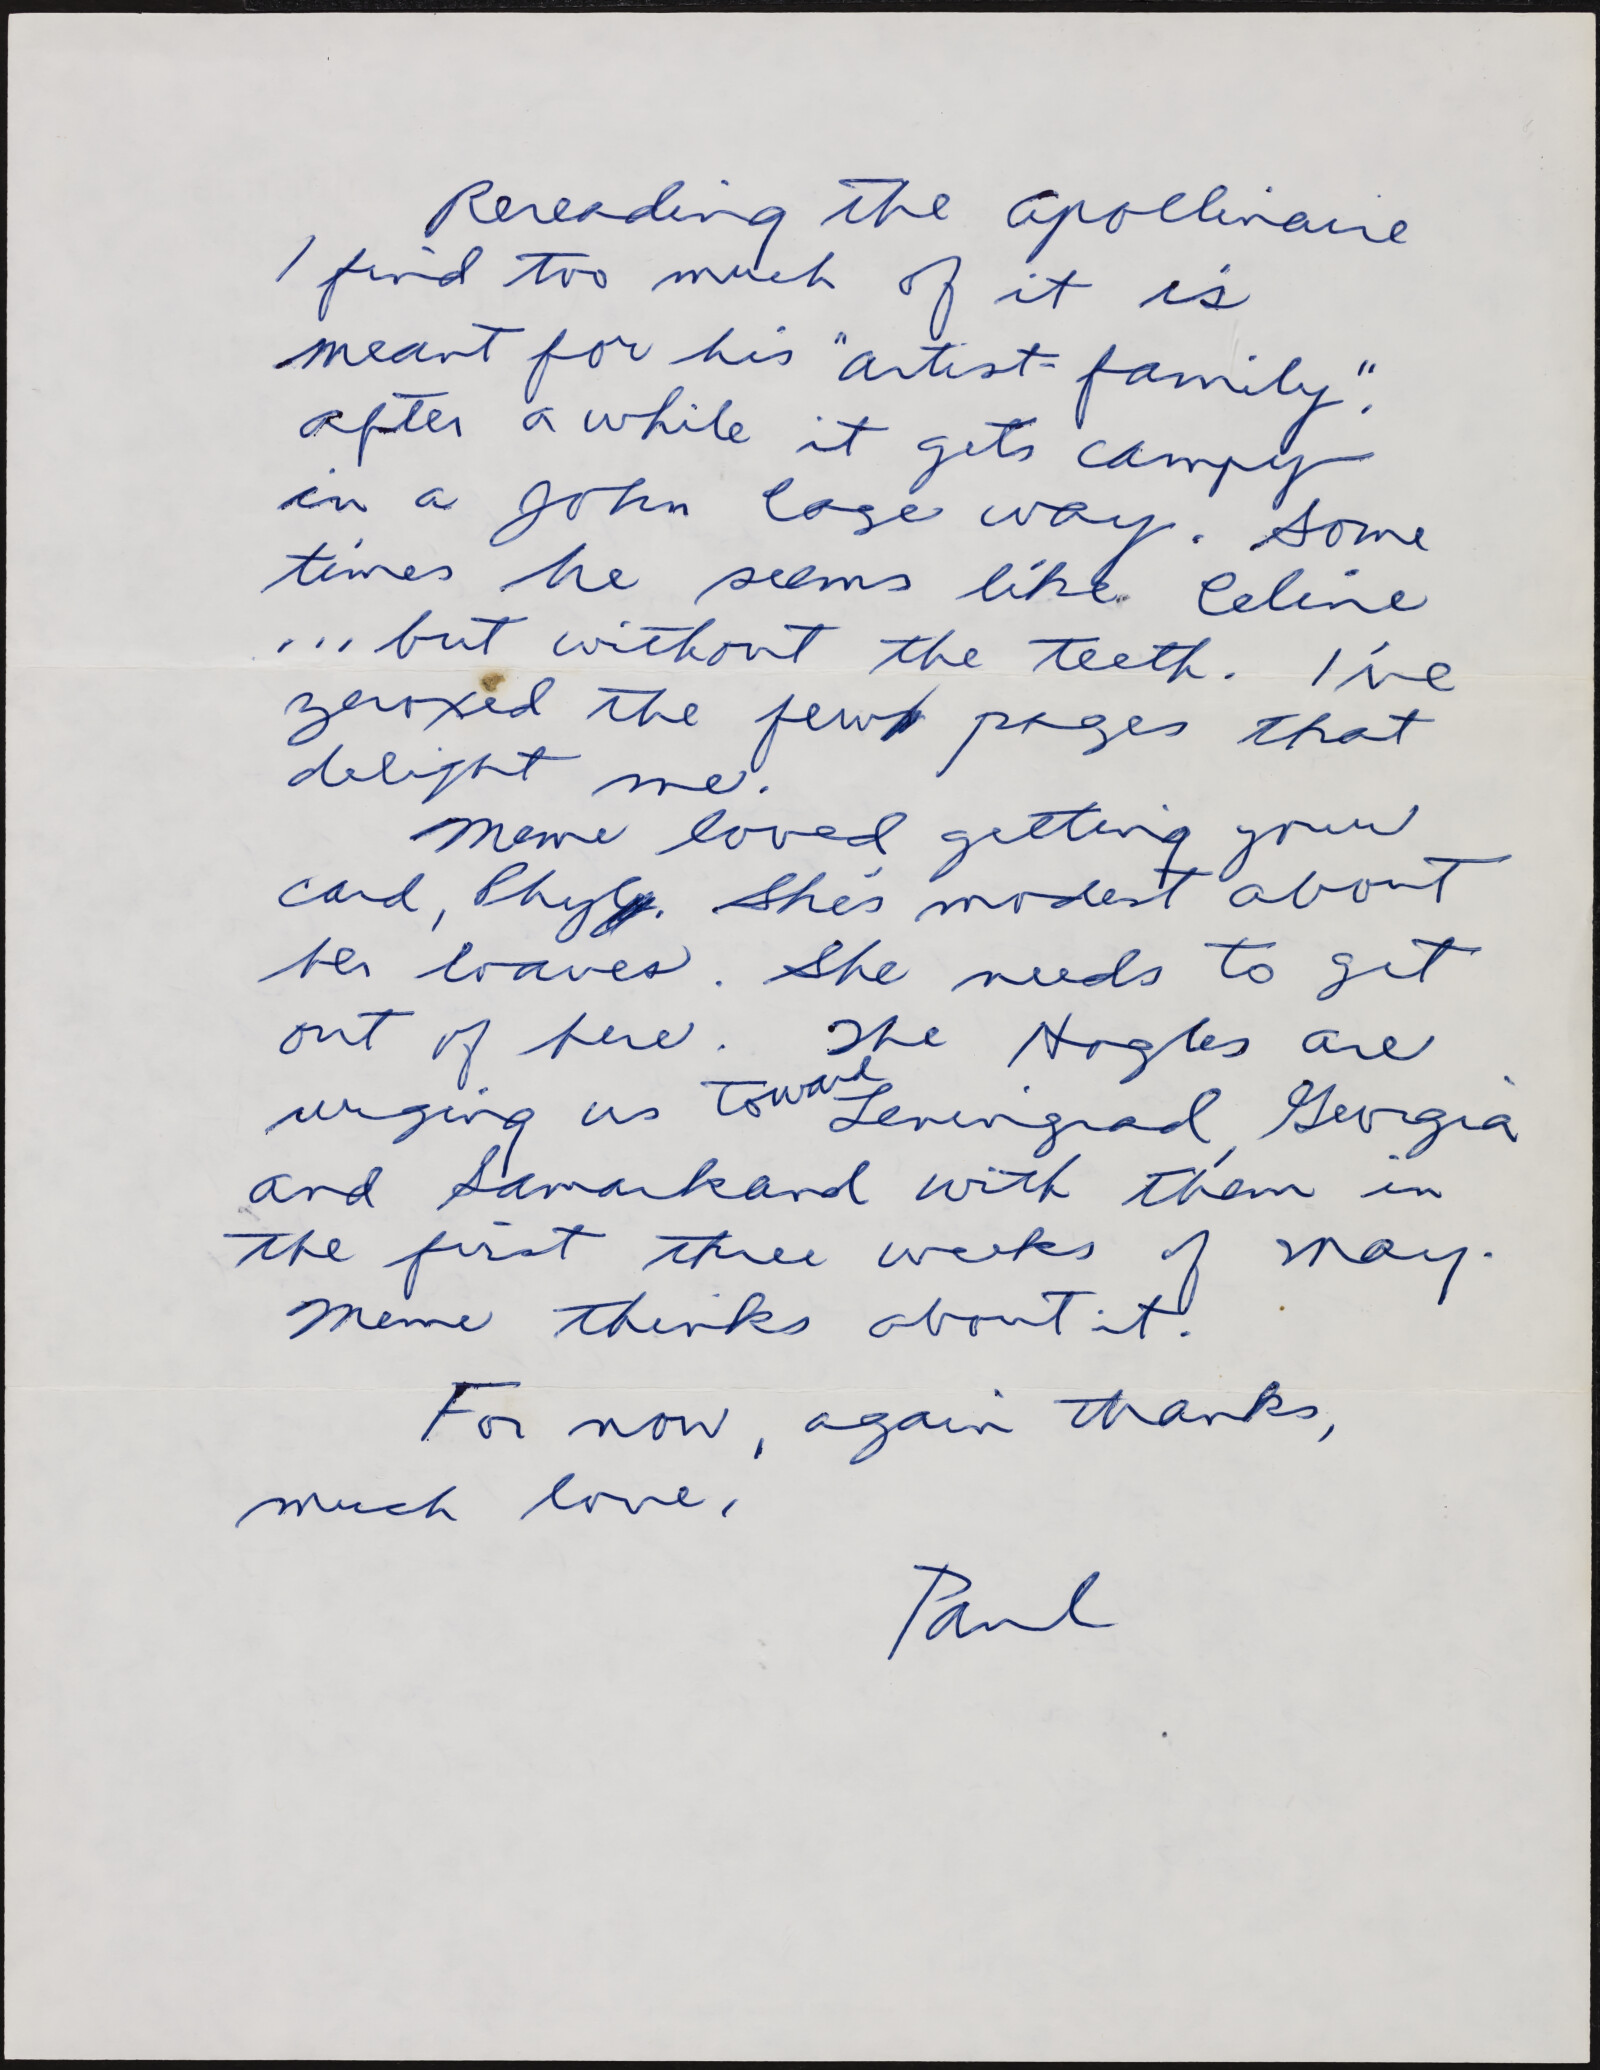 Rereading the Apollinaire
I find too much of it is
meant for his "artist-family".
After a while it gets campy
in a John Cage way. Some
times he seems like Celine
... but without the teeth. I've
zeroxed the few pages that
delight me.
Meme loved getting your
card, Phyl. She's modest about
her loaves. She needs to get
out of here. The Hogles are
urging us toward Leningrad, Georgia
and Samarkand with them in
the first three weeks of May.
Meme thinks about it.
For now, again thanks,
much love,
Paul